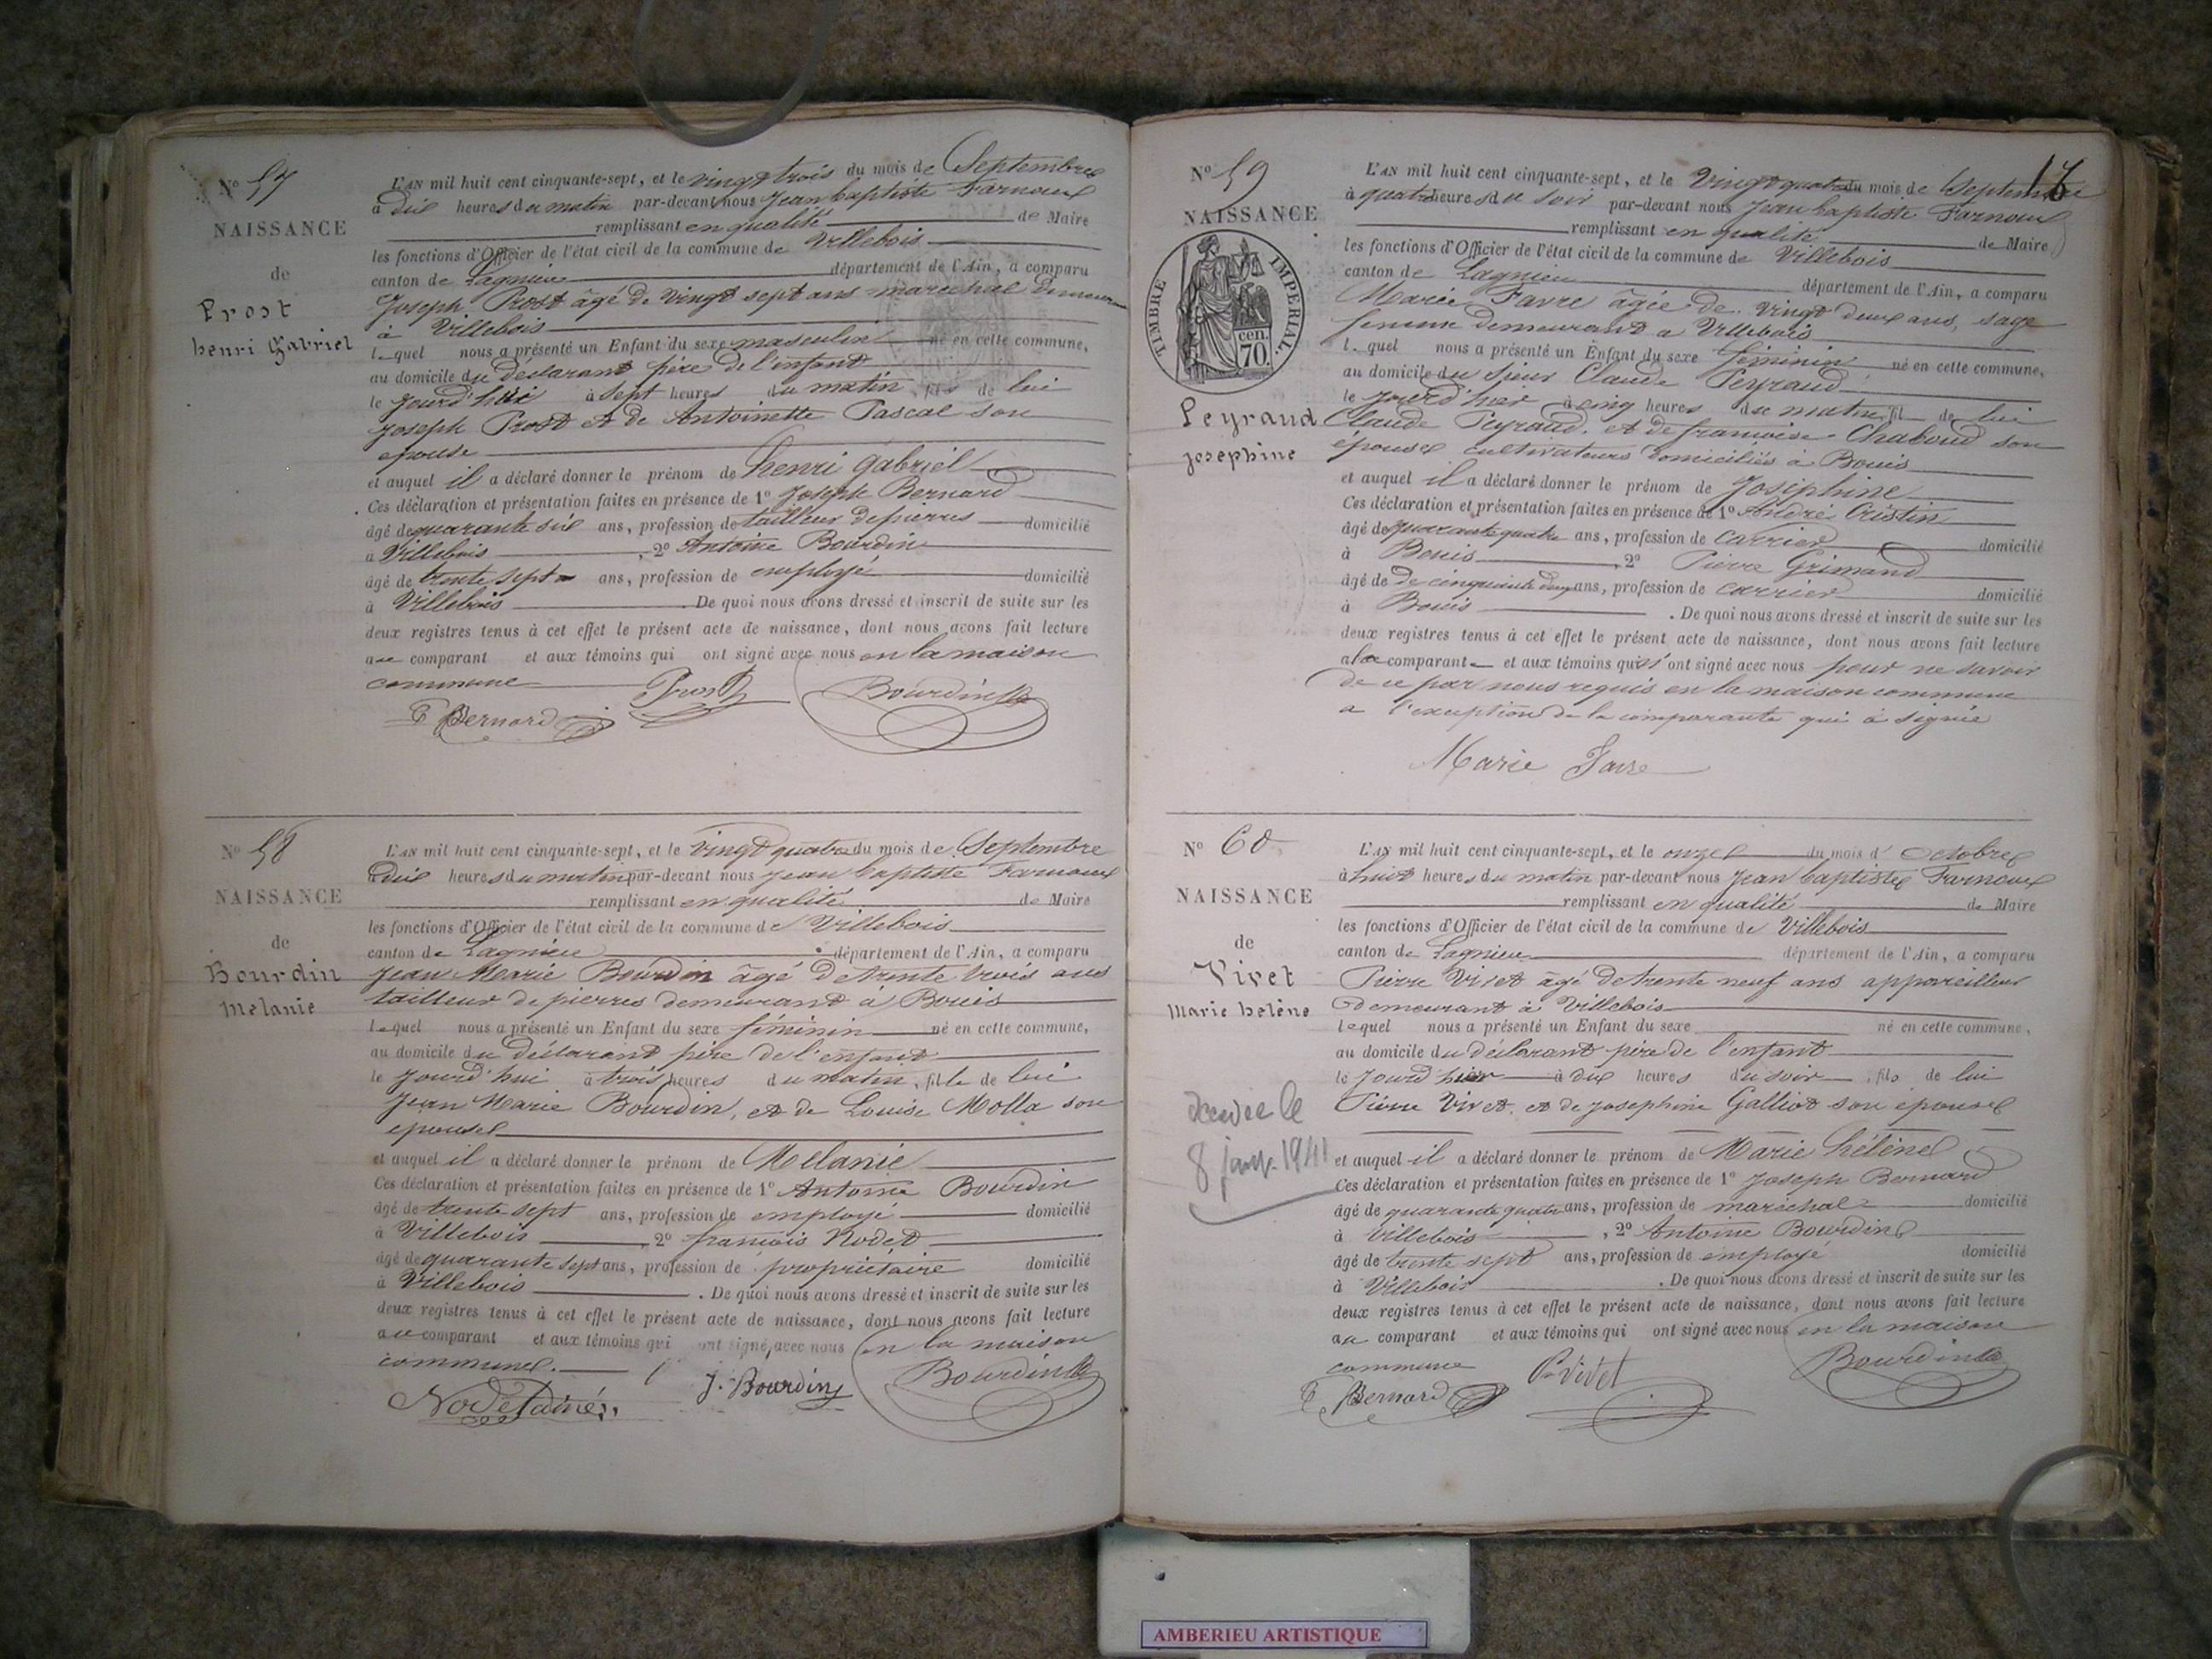 N° 57
NAISSANCE
de
Prost
henri Gabriel
L'AN mil huit cent cinquante-sept, et le vingt trois du mois de Septembre
à dix heures du matin par-devant nous Jean baptiste Farnoux
remplissant en qualité de Maire
les fonctions d'Officier de l'état civil de la commune de Villebois
canton de Lagnieu département de l'Ain, a comparu
Joseph Prost âgé de vingt sept ans maréchal
à Villebois
lequel nous a présenté un Enfant du sexe masculin né en cette commune,
au domicile du déclarant père de l'enfant
le jourd'hui à sept heures du matin, fils de lui
Joseph Prost et de Antoinette Pascal son
epouse
et auquel il a déclaré donner le prénom de henri gabriel
Ces déclaration et présentation faites en présence de 1° Joseph Bernard
âgé de quarante six ans, profession de tailleur de pierres domicilié
à Villebois, 2° Antoine Bourdin
âgé de trente sept ans, profession de employé domicilié
à Villebois. De quoi nous avons dressé et inscrit de suite sur les
deux registres tenus à cet effet le présent acte de naissance, dont nous avons fait lecture
au comparant et aux témoins qui ont signé avec nous en la maison
commune
Prost Bourdin
Bernard
N° 58
NAISSANCE
de
Bourdin
Melanie
L'AN mil huit cent cinquante-sept, et le vingt quatre du mois de Septembre
à dix heures du matin par-devant nous Jean baptiste Farnoux
remplissant en qualité de Maire
les fonctions d'Officier de l'état civil de la commune de Villebois
canton de Lagnieu département de l'Ain, a comparu
Jean Marie Bourdin âgé de trente trois ans
tailleur de pierres demeurant à Bouis
lequel nous a présenté un Enfant du sexe féminin né en cette commune,
au domicile du déclarant père de l'enfant
le jourd'hui à trois heures du matin, fille de lui
Jean Marie Bourdin, et de Louise Molla son
epouse
et auquel il a déclaré donner le prénom de Melanie
Ces déclaration et présentation faites en présence de 1° Antoine Bourdin
âgé de trente sept ans, profession de employé domicilié
à Villebois, 2° francois Nodet
âgé de quarante sept ans, profession de propriétaire domicilié
à Villebois. De quoi nous avons dressé et inscrit de suite sur les
deux registres tenus à cet effet le présent acte de naissance, dont nous avons fait lecture
au comparant et aux témoins qui ont signé avec nous en la maison
commune.
Nodet ainé J. Bourdin Bourdin
17
N° 59
NAISSANCE
TIMBRE IMPERIAL.
cen.
70.
Peyraud
josephine
L'AN mil huit cent cinquante-sept, et le vingt quatre du mois de Septembre
à quatre heures du soir par-devant nous Jean baptiste Farnoux
remplissant en qualité de Maire
les fonctions d'Officier de l'état civil de la commune de Villebois
canton de Lagnieu département de l'Ain, a comparu
Marie Favre âgée de vingt deux ans, sage
femme demeurant a Villebois
lequel nous a présenté un Enfant du sexe féminin né en cette commune,
au domicile du sieur Claude Peyraud
le jourd'hier à cinq heures du matin fil de lui
Claude Peyraud. et de francoise Chaboud son
épouse cultivateurs domiciliés à Bouis
et auquel il a déclaré donner le prénom de Joséphine
Ces déclaration et présentation faites en présence de 1° André Cristin
âgé de quarante quatre ans, profession de carrier domicilié
à Bouis, 2° Pierre Grimand
âgé de de cinquante deux ans, profession de carrier domicilié
à Bouis. De quoi nous avons dressé et inscrit de suite sur les
deux registres tenus à cet effet le présent acte de naissance, dont nous avons fait lecture
a la comparante et aux témoins qui n'ont signé avec nous pour ne savoir
de ce par nous requis en la maison commune
a l'exception de la comparante qui à signée
Marie Favre
N° 60
NAISSANCE
de
Vivet
Marie helène
décédée le
8 janv. 1941
L'AN mil huit cent cinquante-sept, et le onze du mois d'Octobre
à huit heures du matin par-devant nous Jean baptiste Farnoux
remplissant en qualité de Maire
les fonctions d'Officier de l'état civil de la commune de Villebois
canton de Lagnieu département de l'Ain, a comparu
Pierre Vivet âgé de trente neuf ans appareilleur
demeurant à Villebois
lequel nous a présenté un Enfant du sexe né en cette commune,
au domicile du déclarant père de l'enfant
le jourd'hier à dix heures du soir, fils de lui
Pierre Vivet, et de Josephine Galliot son epouse
et auquel il a déclaré donner le prénom de Marie hélène
Ces déclaration et présentation faites en présence de 1° Joseph Bernard
âgé de quarante quatre ans, profession de maréchal domicilié
à Villebois, 2° Antoine Bourdin
âgé de trente sept ans, profession de employé domicilié
à Villebois. De quoi nous avons dressé et inscrit de suite sur les
deux registres tenus à cet effet le présent acte de naissance, dont nous avons fait lecture
au comparant et aux témoins qui ont signé avec nous en la maison
commune
Bernard P. Vivet Bourdin
AMBERIEU ARTISTIQUE